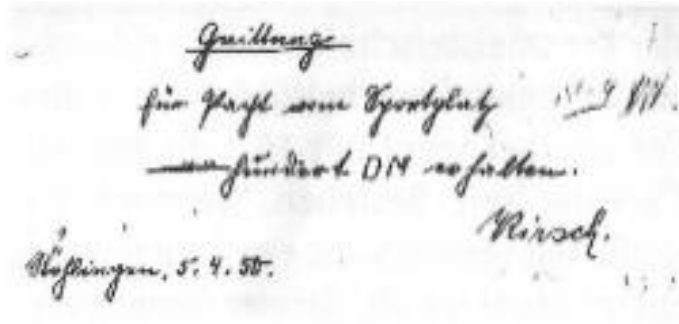 Quittung
für Pacht vom Sportplatz
hundert DM erhalten.
Kirsch.
Röhlingen, 5.4.50.